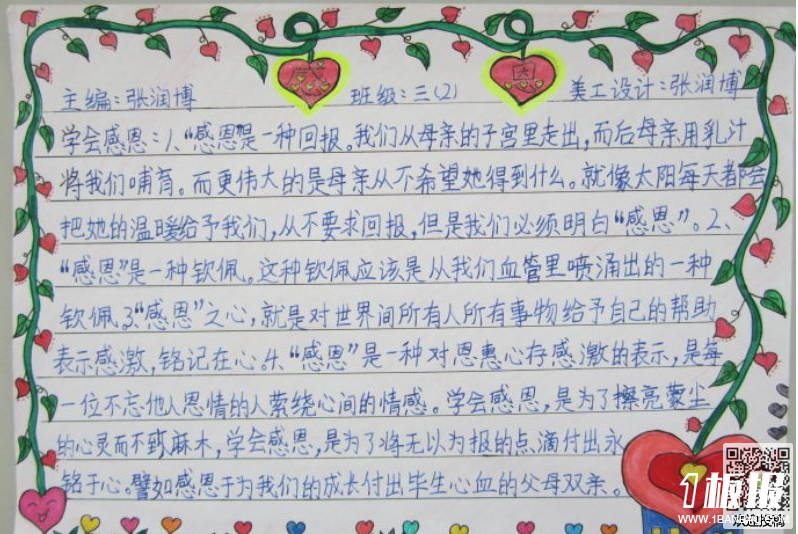 感 恩
主编:张润博 班级:三(2) 美工设计:张润博
学会感恩:1、“感恩”是一种回报。我们从母亲的子宫里走出,而后母亲用乳汁
将我们哺育。而更伟大的是母亲从不希望她得到什么。就像太阳每天都会
把她的温暖给予我们,从不要求回报,但是我们必须明白“感恩”。2、
“感恩”是一种钦佩。这种钦佩应该是从我们血管里喷涌出的一种
钦佩。3、“感恩”之心,就是对世界间所有人所有事物给予自己的帮助
表示感激,铭记在心。4、“感恩”是一种对恩惠心存感激的表示,是每
一位不忘他人恩情的人萦绕心间的情感。学会感恩,是为了擦亮蒙尘
的心灵而不到麻木,学会感恩,是为了将无以为报的点滴付出永
铭于心。譬如感恩于为我们的成长付出毕生心血的父母双亲。
1板报
WWW.1BANBAO.COM